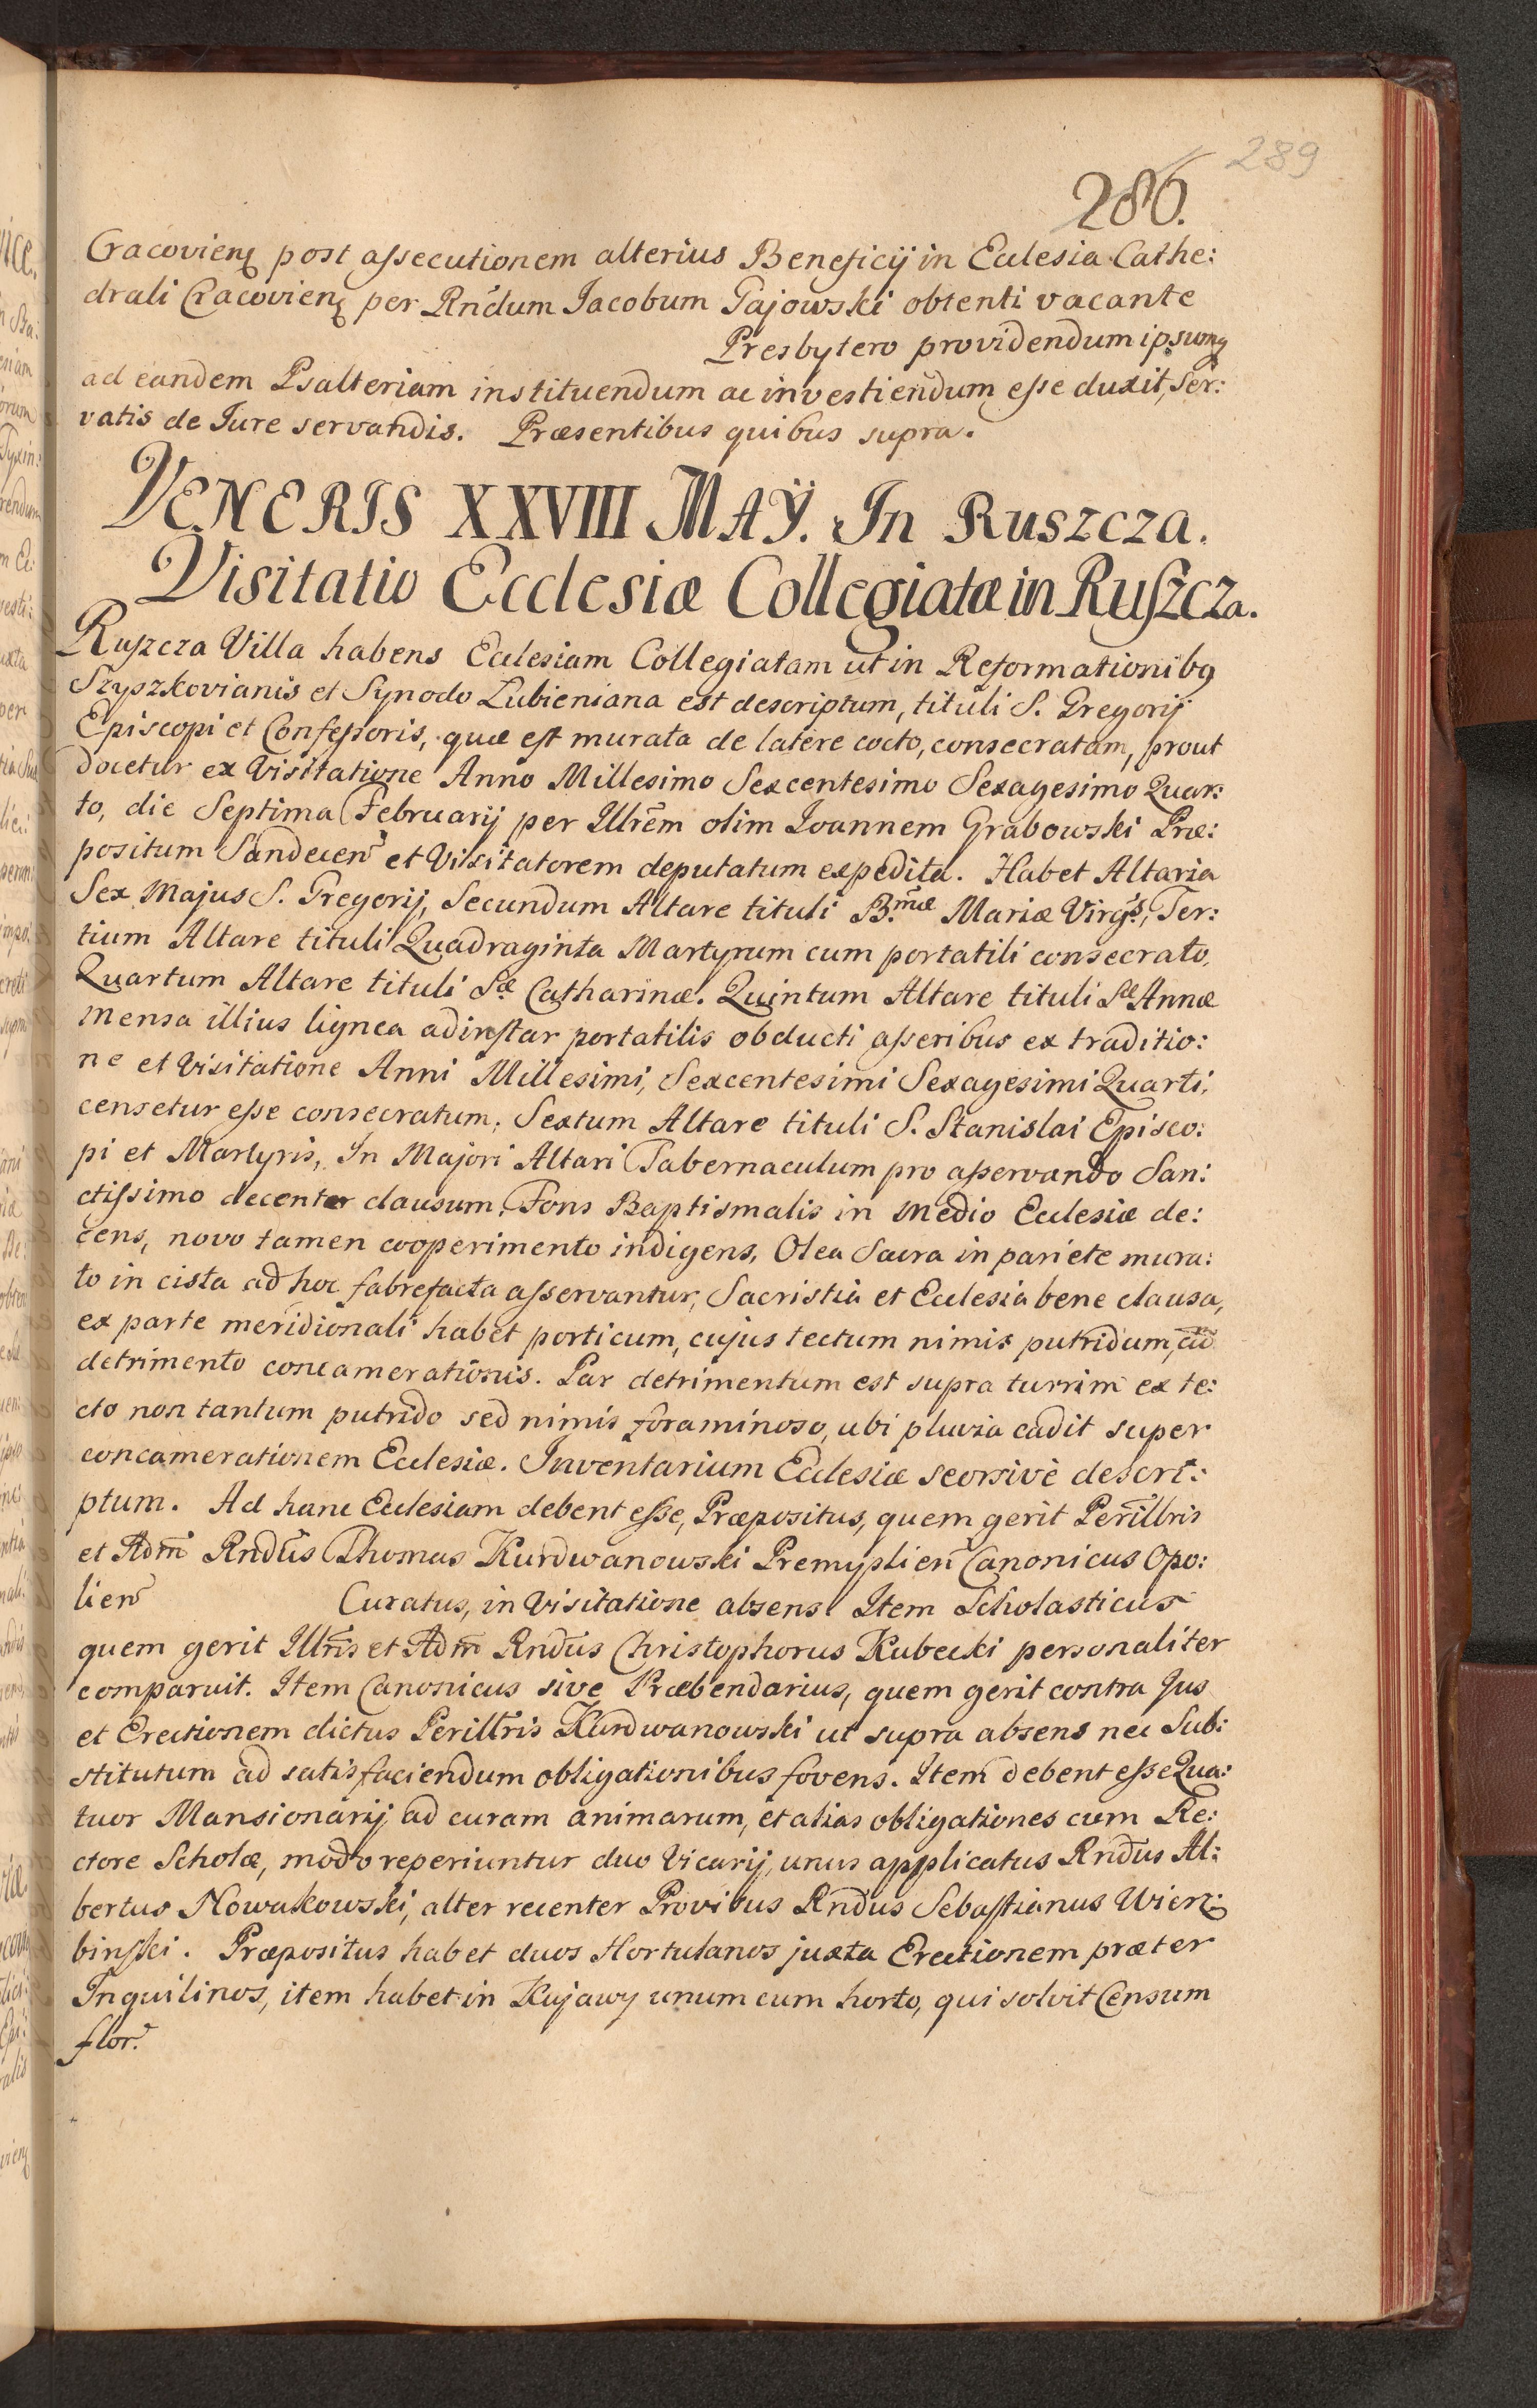 289
286.
Cracovien̄ post assecutionem alterius Beneficij in Ecclesia Cathe:
drali Cracovien̄ per Rn̄dum Jacobum Gajowski obtenti vacante
Presbytero providendum ipsumq
ad eandem Psalteriam instituendum ac investiendum esse duxit, ser:
vatis de Jure servandis. Præsentibus quibus supra.
VENERIS XXVIII MAŸ. In Ruszcza.
Visitatio Ecclesiæ Collegiatæ in Ruszcza.
Ruszcza Villa habens Ecclesiam Collegiatam ut in Reformationibq
Szyszkovianis et Synodo Lubieniana est descriptum, tituli S. Gregorij
Episcopi et Confessoris, quæ est murata de latere cocto, consecratam, prout
docetur ex Visitatione Anno Millesimo Sexcentesimo Sexagesimo Quar:
to, die Septima Februarij per Illrēm olim Joannem Grabowski Præ:
positum Sandecen̄ et Visitatorem deputatum expedita. Habet Altaria
Sex Majus S. Gregorij, Secundum Altare tituli B.mæ Mariæ Virg̃s, Ter:
tium Altare tituli Quadraginta Martyrum cum portatili consecrato.
Quartum Altare tituli Sæ Catharinæ. Quintum Altare tituli Sæ Annæ
mensa illius lignea adinstar portatilis obducti asseribus ex traditio:
ne et Visitatione Anni Millesimi, Sexcentesimi Sexagesimi Quarti,
censetur esse consecratum, Sextum Altare tituli S. Stanislai Episco:
pi et Martyris, In Majori Altari Tabernaculum pro asservando San:
ctissimo decenter clausum, Fons Baptismalis in medio Ecclesiæ de:
cens, novo tamen cooperimento indigens, Olea Sacra in pariete mura:
to in cista ad hoc fabrefacta asservantur, Sacristia et Ecclesia bene clausa,
ex parte meridionali habet porticum, cujus tectum nimis putridum, cū
detrimento concamerationis. Par detrimentum est supra turrim ex te:
cto non tantum putrido sed nimis foraminoso, ubi pluvia cadit super
concamerationem Ecclesiæ. Inventarium Ecclesiæ seorsivè descri:
ptum. Ad hanc Ecclesiam debent esse, Præpositus, quem gerit Perillr̄is
et Adm̄ Rndūs Thomas Kurdwanowski Premyslien̄ Canonicus Opo:
lien̄ Curatus, in Visitatione absens Item Scholasticus
quem gerit Illr̄is et Adm̄ Rndūs Christophorus Kubecki personaliter
comparuit. Item Canonicus sive Præbendarius, quem gerit contra Jus
et Erectionem dictus Perillr̄is Kurdwanowski ut supra absens nec Sub:
stitutum ad satisfaciendum obligationibus fovens. Item debent esse Qua:
tuor Mansionarij ad curam animarum, et alias obligationes cum Re:
ctore Scholæ, modo reperiuntur duo Vicarij, unus applicatus Rndūs Al:
bertus Nowakowski, alter recenter Provisus Rndūs Sebastianus Wierz:
binski. Præpositus habet duos Hortulanos juxta Erectionem præter
Inquilinos, item habet in Kujawy unum cum horto, qui solvit Censum
flor.